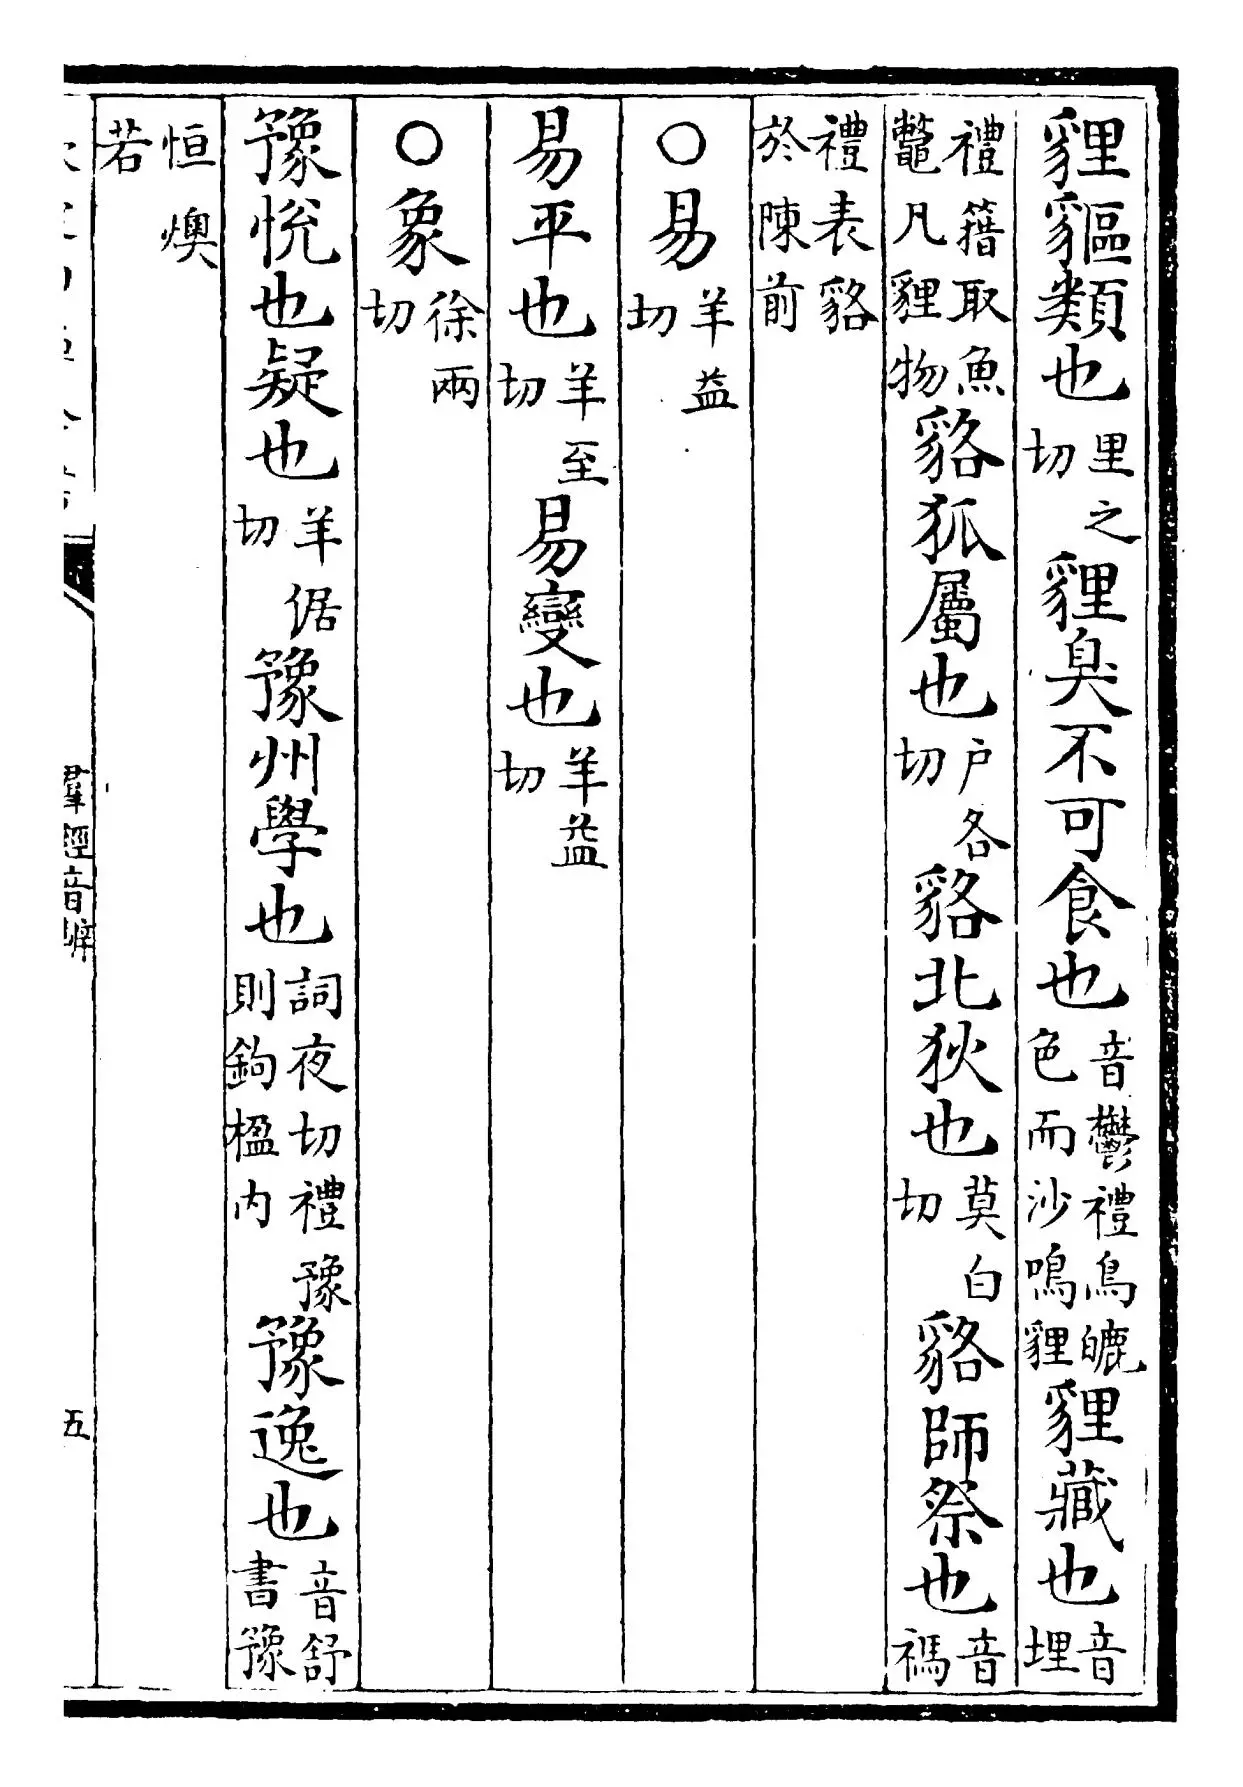 貍貙類也里之切貍臭不可食也音鬱禮鳥皫色而沙鳴貍貍藏也音埋
禮簎取魚鼈凡貍物貉狐屬也户各切貉北狄也莫白切貉師祭也音禡
禮表貉於陳前
○易羊益切
易平也羊至切易變也羊益切
○象徐兩切
豫悅也疑也羊倨切豫州學也詞夜切禮豫則鉤楹内豫逸也音舒書豫
恒燠若
羣經音辨
五